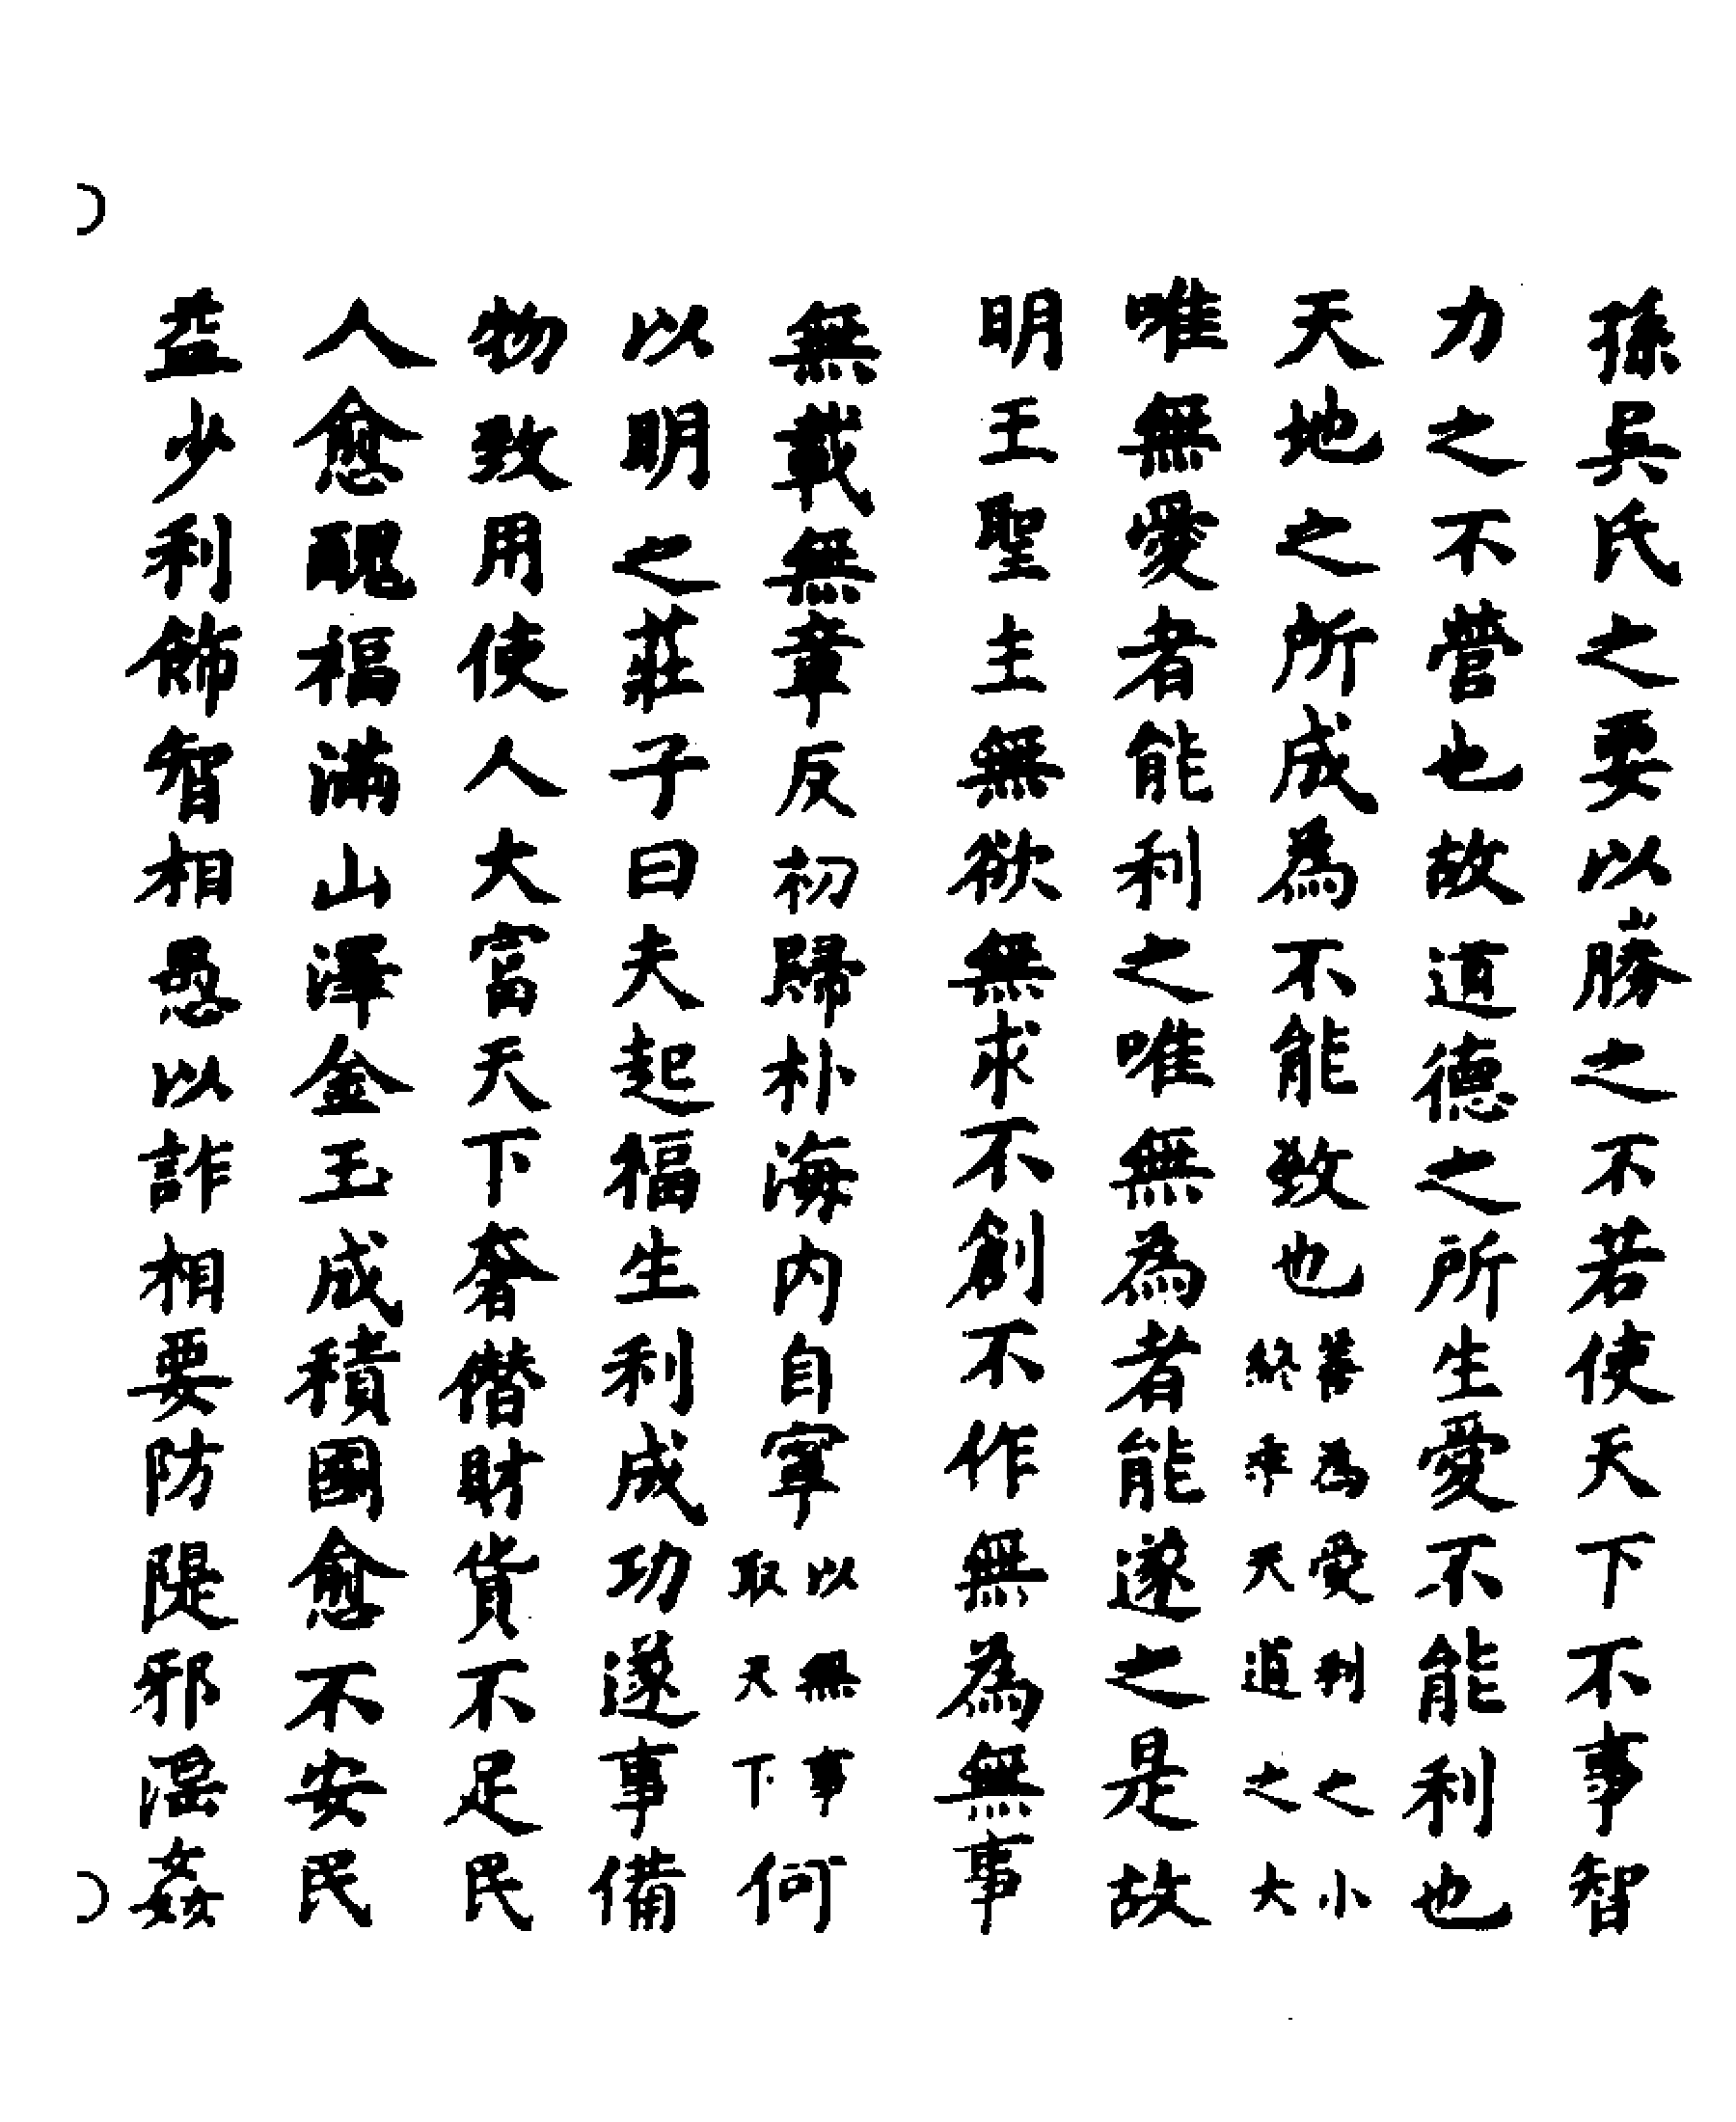 孫吳氏之要以勝之不若使天下不事智
力之不營也故道德之所生愛不能利也
天地之所成為不能致也善為愛利之小終乖天道之大
唯無愛者能利之唯無為者能遂之是故
明王聖主無欲無求不創不作無為無事
無載無章反初歸朴海內自寧以無事取天下何
以明之莊子曰夫起福生利成功遂事備
物致用使人大富天下奢僭財貨不足民
人愈醜福滿山澤金玉成積國愈不安民
益少利飾智相愚以詐相要防隄邪淫姦